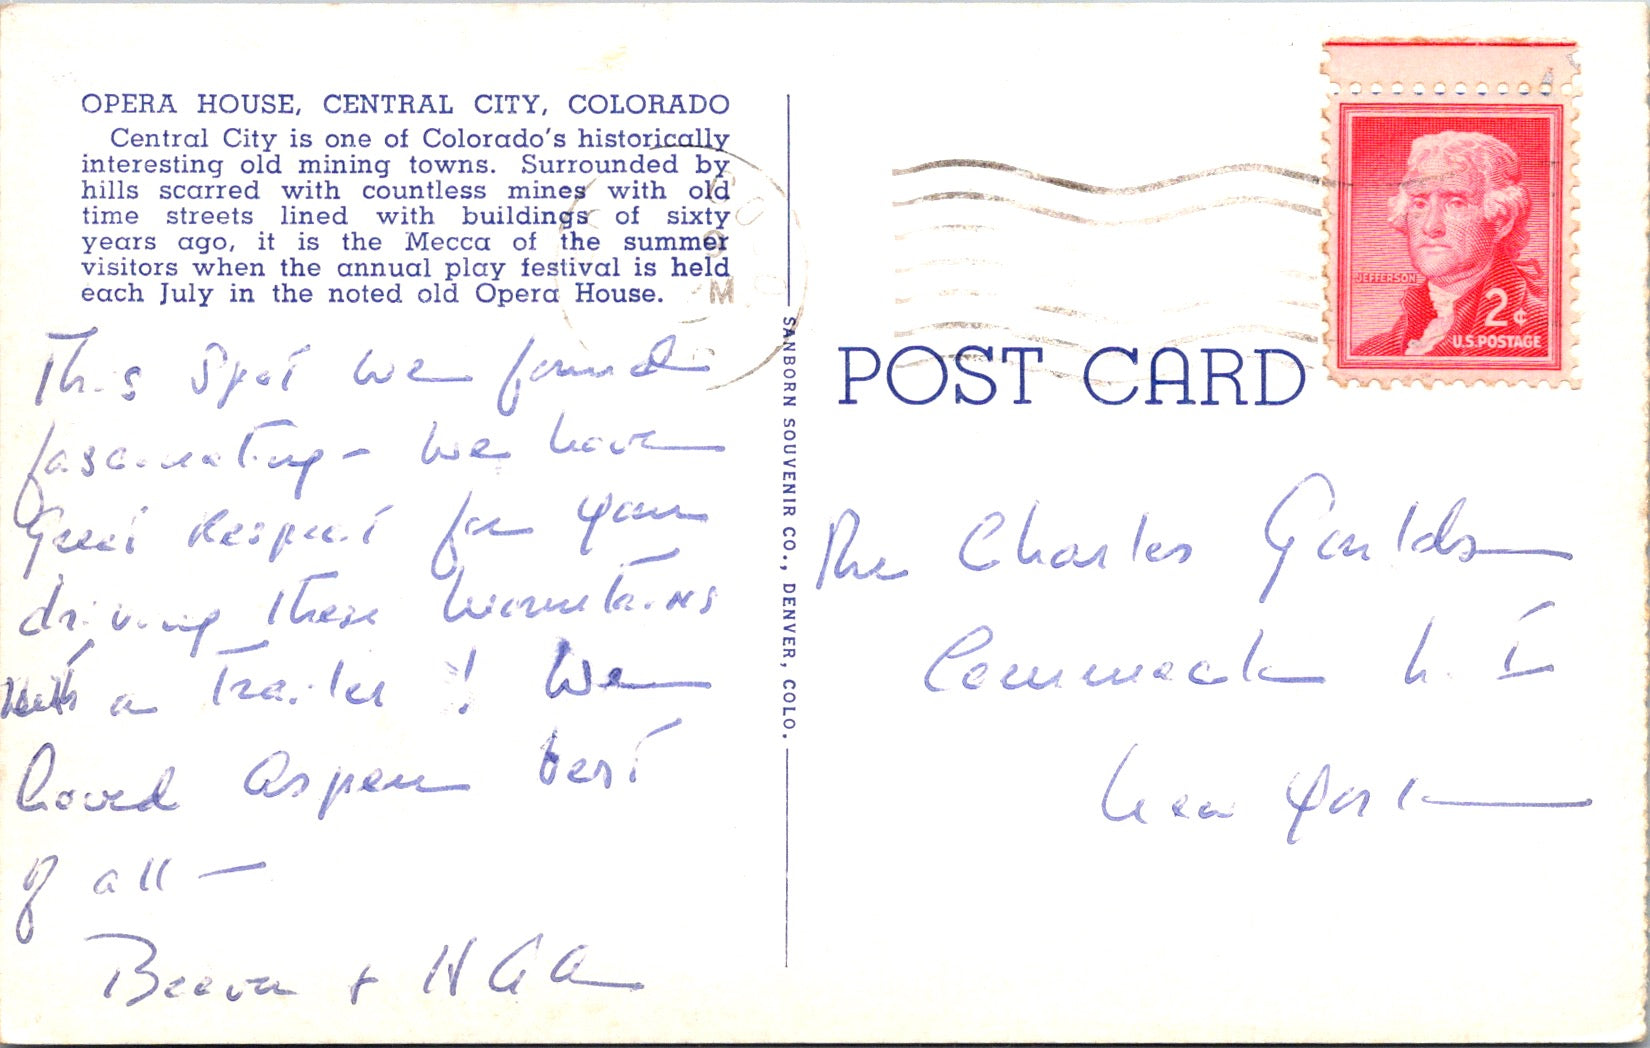 OPERA HOUSE, CENTRAL CITY, COLORADO
Central City is one of Colorado's historically
interesting old mining towns. Surrounded by
hills scarred with countless mines with old
time streets lined with buildings of sixty
years ago, it is the Mecca of the summer
visitors when the annual play festival is held
each July in the noted old Opera House.
This Spot we found
fascinating – We have
Great Respect for your
driving these mountains
with a Trailer ! We
loved Aspen best
of all –
SANBORN SOUVENIR CO., DENVER, COLO.
POST CARD
JEFFERSON
2¢
U.S. POSTAGE
The Charles Goulds
Commack L. I
New York